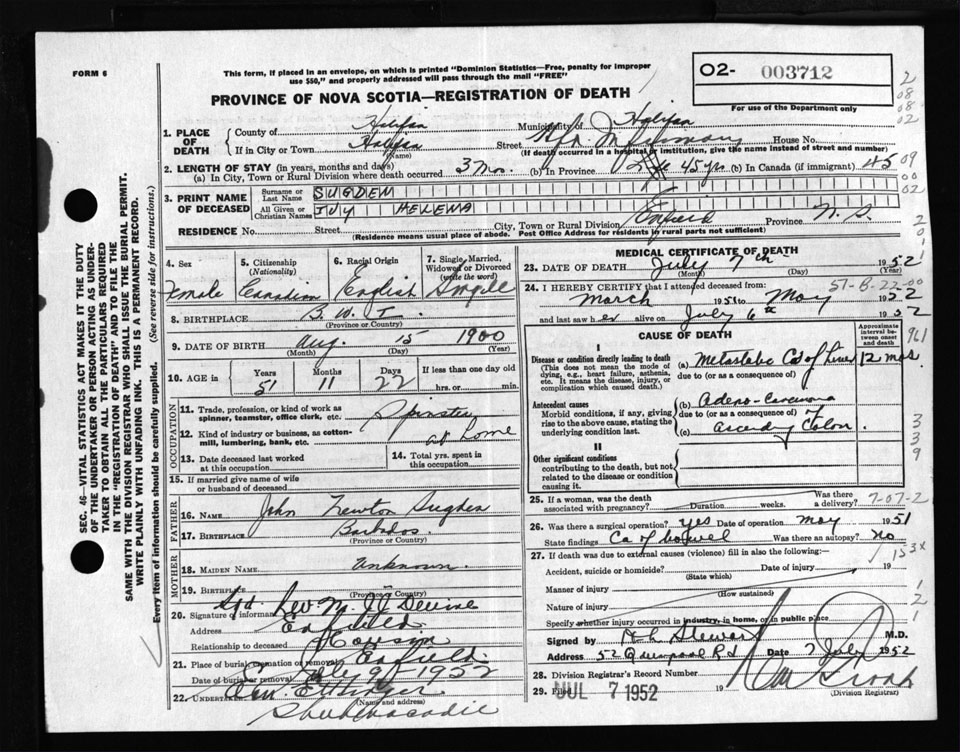 FORM 6
This form, if placed in an envelope, on which is printed "Dominion Statistics—Free, penalty for improper
use $50," and properly addressed will pass through the mail "FREE"
PROVINCE OF NOVA SCOTIA—REGISTRATION OF DEATH
O2- 003712
For use of the Department only
2
08
08
02
1. PLACE OF DEATH
County of Halifax Municipality of Halifax
If in City or Town Halifax Street House No.
(Name) (If death occurred in a hospital or institution, give the name instead of street and number)
2. LENGTH OF STAY (in years, months and days)
(a) In City, Town or Rural Division where death occurred 3 Mos. (b) In Province 45 yrs (b) In Canada (if immigrant) 45
09
00
02
3. PRINT NAME OF DECEASED
Surname or Last Name SUGDEN
All Given or Christian Names IVY HELENA
RESIDENCE No. Street City, Town or Rural Division Enfield Province N. S.
(Residence means usual place of abode. Post Office Address for residents of rural parts not sufficient)
4. Sex Female
5. Citizenship (Nationality) Canadian
6. Racial Origin English
7. Single, Married, Widowed or Divorced (write the word) Single
8. BIRTHPLACE B. W. I.
(Province or Country)
9. DATE OF BIRTH Aug. 15 1900
(Month) (Day) (Year)
10. AGE in Years 51 Months 11 Days 22 If less than one day old
hrs. or min.
OCCUPATION
11. Trade, profession, or kind of work as spinner, teamster, office clerk, etc. Spinster
12. Kind of industry or business, as cotton-mill, lumbering, bank, etc. at home
13. Date deceased last worked at this occupation
14. Total yrs. spent in this occupation
15. If married give name of wife or husband of deceased
FATHER
16. Name John Newton Sugden
17. Birthplace Barbados.
(Province or Country)
MOTHER
18. Maiden Name unknown.
19. Birthplace
(Province or Country)
20. Signature of informant Sgd. Rev. M. Devine
Address Enfield
Relationship to deceased Cousin
21. Place of burial, cremation or removal Enfield.
Date of burial or removal July 9 - 1952
22. Undertaker Ettinger
(Name and address)
Shubenacadie
MEDICAL CERTIFICATE OF DEATH
23. DATE OF DEATH July 7th 1952
(Month) (Day)
24. I HEREBY CERTIFY that I attended deceased from:
57-B-22-00
March 1951 to May 1952
and last saw her alive on July 6th 1952
CAUSE OF DEATH
Approximate interval between onset and death
961
I
Disease or condition directly leading to death
(This does not mean the mode of dying, e.g., heart failure, asthenia, etc. It means the disease, injury, or complication which caused death.)
(a) Metastatic Ca of Liver 12 mos
due to (or as a consequence of)
Antecedent causes
Morbid conditions, if any, giving rise to the above cause, stating the underlying condition last.
(b) Adeno-Carcinoma
due to (or as a consequence of) of
(c) ascending Colon.
II
Other significant conditions
contributing to the death, but not related to the disease or condition causing it.
3
3
9
25. If a woman, was the death associated with pregnancy? Duration weeks. Was there a delivery?
7-07-2
26. Was there a surgical operation? yes Date of operation May 1951
State findings Ca of bowel Was there an autopsy? No
27. If death was due to external causes (violence) fill in also the following:—
Accident, suicide or homicide? Date of injury 19
(State which)
Manner of injury
(How sustained)
Nature of injury
Specify whether injury occurred in industry, in home, or in public place
Signed by H L Stewart M.D.
Address 52 Quinpool Rd Date 7 July 1952
28. Division Registrar's Record Number
29. Filed JUL 7 1952 19
(Division Registrar)
SEC. 46—VITAL STATISTICS ACT MAKES IT THE DUTY
OF THE UNDERTAKER OR PERSON ACTING AS UNDER-
TAKER TO OBTAIN ALL THE PARTICULARS REQUIRED
IN THE "REGISTRATION OF DEATH" AND TO FILE THE
SAME WITH THE DIVISION REGISTRAR WHO SHALL ISSUE THE BURIAL PERMIT.
WRITE PLAINLY WITH UNFADING INK. THIS IS A PERMANENT RECORD.
Every item of information should be carefully supplied. (See reverse side for instructions.)